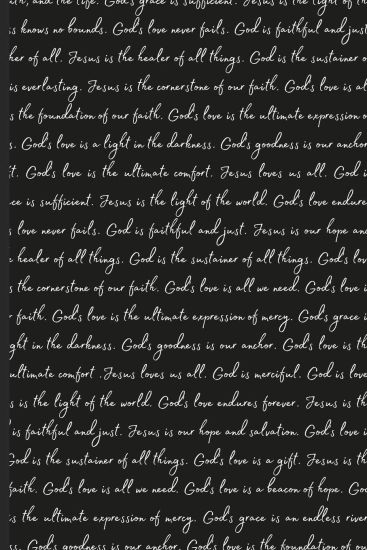 and the life. God's grace is sufficient. Jesus is the light of
knows no bounds. God's love never fails. God is faithful and just
of all. Jesus is the healer of all things. God is the sustainer o
is everlasting. Jesus is the cornerstone of our faith. God's love is al
s the foundation of our faith. God's love is the ultimate expression o
s. God's love is a light in the darkness. God's goodness is our anchor
t. God's love is the ultimate comfort. Jesus loves us all. God i
ce is sufficient. Jesus is the light of the world. God's love endure
s love never fails. God is faithful and just. Jesus is our hope an
healer of all things. God is the sustainer of all things. God's lov
s the cornerstone of our faith. God's love is all we need. God's love i
r faith. God's love is the ultimate expression of mercy. God's grace i
ght in the darkness. God's goodness is our anchor. God's love is th
ultimate comfort .Jesus loves us all. God is merciful. God is love
s is the light of the world. God's love endures forever. Jesus is th
is faithful and just. Jesus is our hope and salvation. God's love i
God is the sustainer of all things. God's love is a gift. Jesus is th
faith. God's love is all we need. God's love is a beacon of hope. Go
s the ultimate expression of mercy. God's grace is an endless river
ss. God's goodness is our anchor. God's love is the foundation of ou